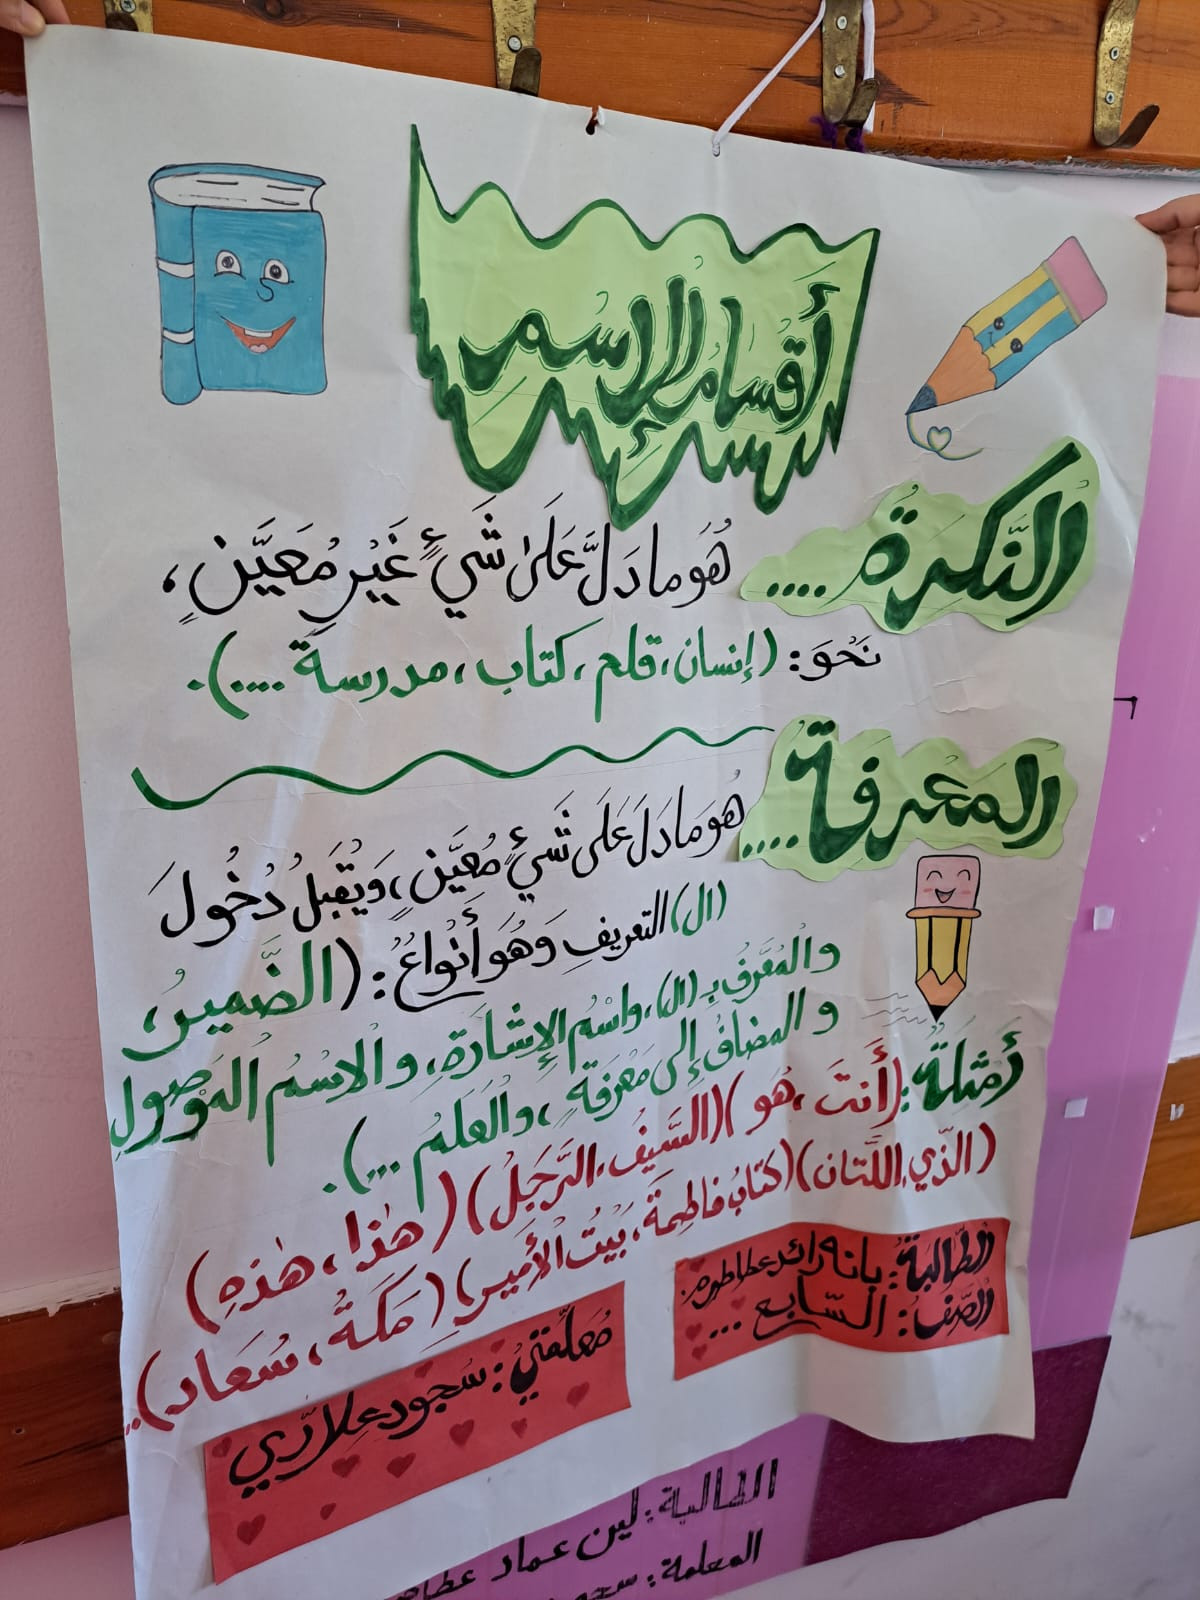 أقسام الإسم
النَّكرة ....
هُوَ ما دَلَّ عَلَى شَيْءٍ غَيْرِ مُعَيَّنٍ،
نَحْوَ: (إنسان، قلم، كتاب، مدرسة ....).
المَعْرفة ....
هُوَ مَا دَلَ عَلَى شَيْءٍ مُعَيَّنٍ، وَيُقْبَلُ دُخُولَ
(ال) التعريفِ وَهُوَ أَنْواعُ: (الضَّميرُ،
والْمُعَرَّفُ بِـ (ال)، واسْمُ الإِشارَةِ، والاسْمُ المَوْصولِ
و المضافُ إلى مَعْرَفَةٍ، والْعَلَمُ ...).
أَمْثِلَةٌ: (أَنتَ، هُو) (السَّيفُ، الرَّجَلُ) (هٰذا، هٰذهِ)
(الّذي، اللَّتان) (كتابُ فاطِمَة، بَيْتُ الْأَمير) (مَكَةُ، سُعَاد)...
الطَّالبَةُ: بانه رائد عطاطره.
الصَّفُ: السَّابع ...
مُعلِّمَتي: سجود علارّي
الطالبة: لين عماد
المعلمة: